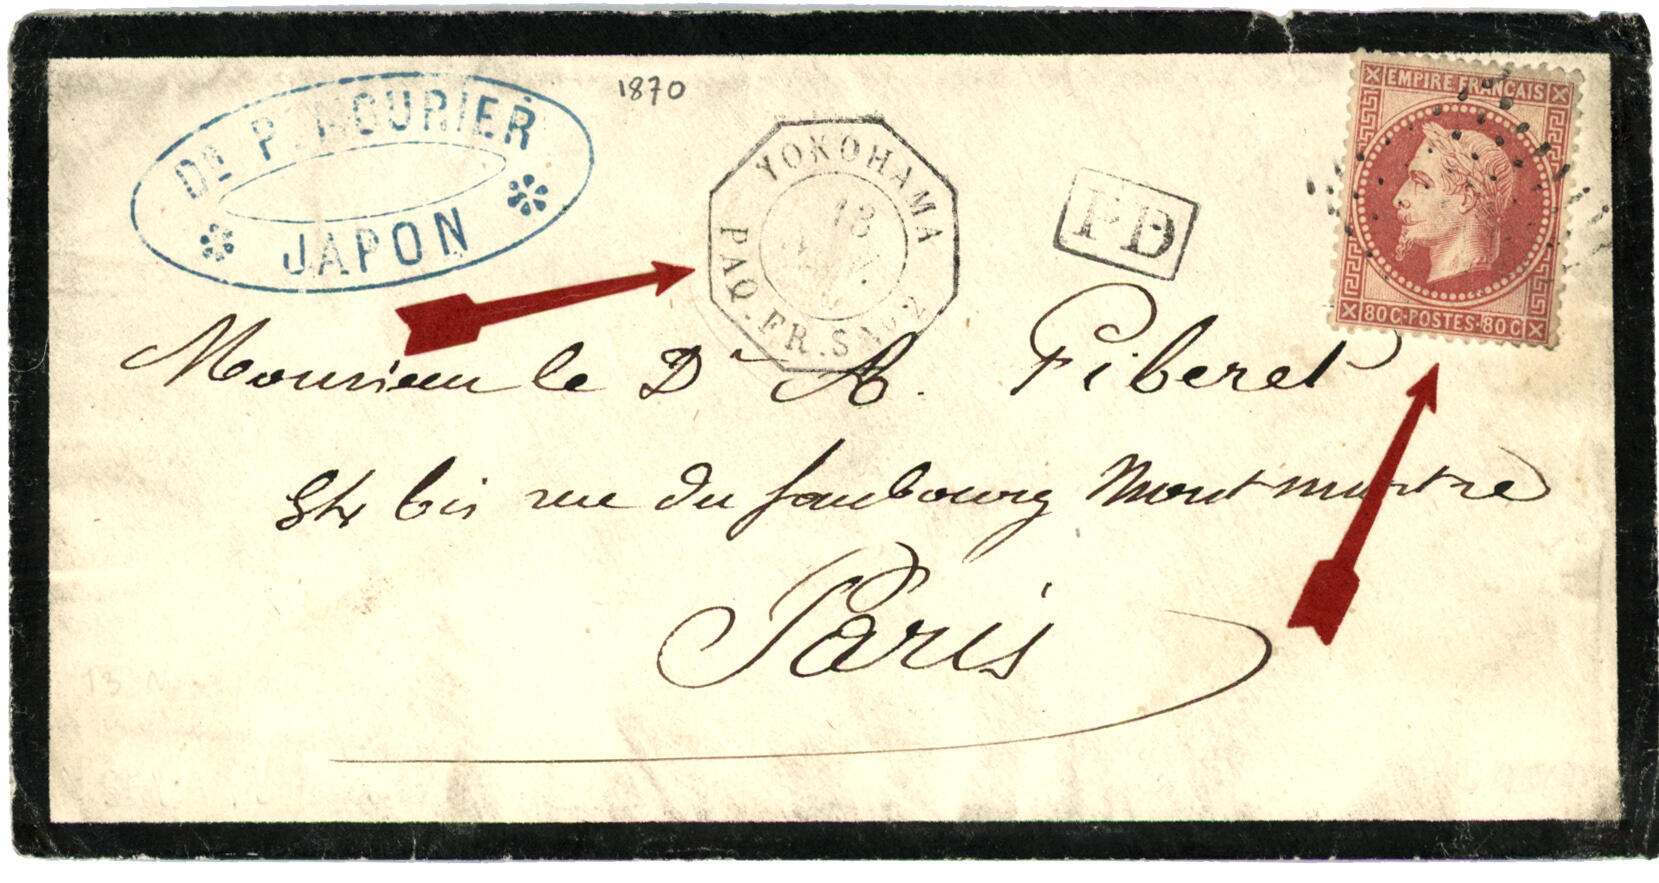 1870
Dr P. MOURIER
JAPON
YOKOHAMA
13
PAQ. FR. S No 2
PD
EMPIRE FRANÇAIS
80C·POSTES·80C
Monsieur le Dr A.
bis rue du faubourg Montmartre
Paris